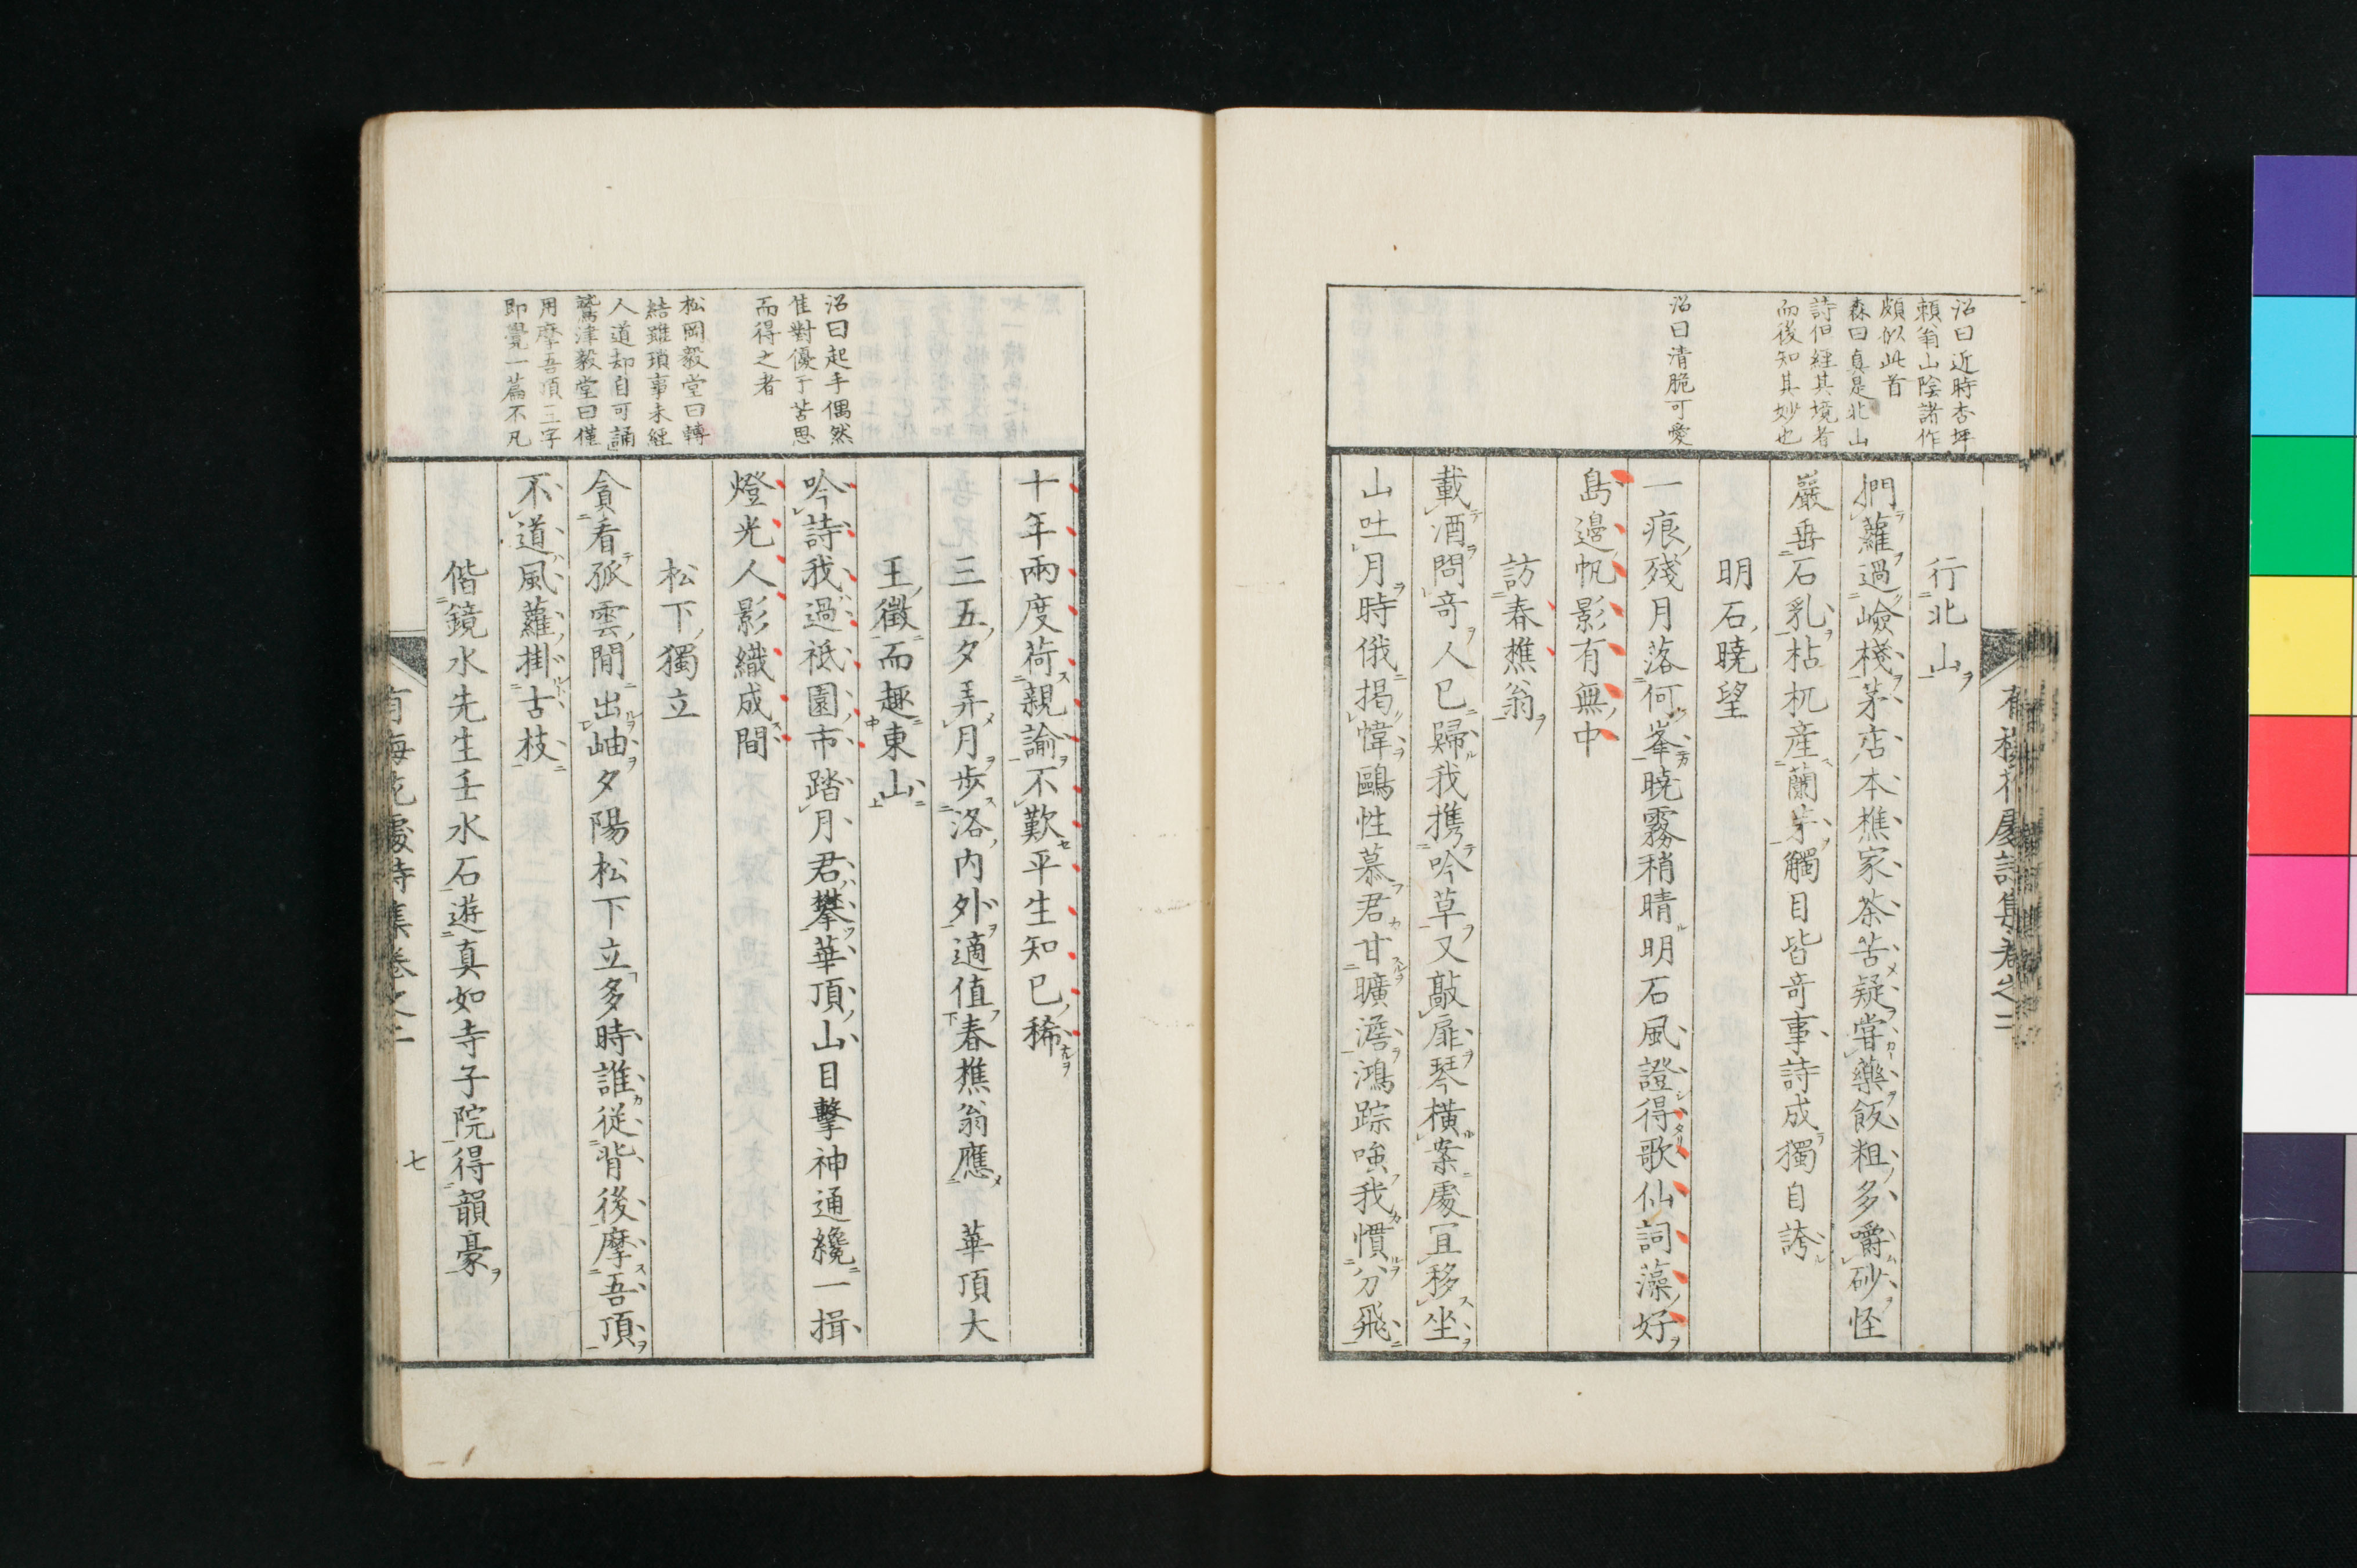 沼曰近時杏坪
頼翁山陰諸作
頗似此首
森曰真是北山
詩但經其境者
而後知其妙也
沼曰清脆可愛
行北山
捫蘿過嶮棧茅店本樵家茶苦疑甞藥飯粗多嚼砂怪
巖垂石乳枯杌産蘭芽觸目皆奇事詩成獨自誇
明石曉望
一痕殘月落何峯曉霧稍晴明石風證得歌仙詞藻好
島邊帆影有無中
訪春樵翁
載酒問奇人已歸我携吟草又敲扉琴橫案處冝移坐
山吐月時俄揭幃鷗性慕君甘曠澹鴻踪嗤我慣分飛
沼曰起手偶然
隹對優于苦思
而得之者
松岡毅堂曰轉
結雖瑣事未經
人道却自可誦
鷲津毅堂曰僅
用摩吾頂三字
即覺一篇不凡
十年兩度荷親諭不歎平生知已稀
三五夕弄月歩洛内外適值春樵翁應 華頂大
王徵而趣東山
吟詩我過祇園市踏月君攀華頂山目擊神通纔一揖
燈光人影織成間
松下獨立
貪看孤雲閒出岫夕陽松下立多時誰從背後摩吾頂
不道風蘿掛古枝
偕鏡水先生壬水石遊真如寺子院得韻豪
七